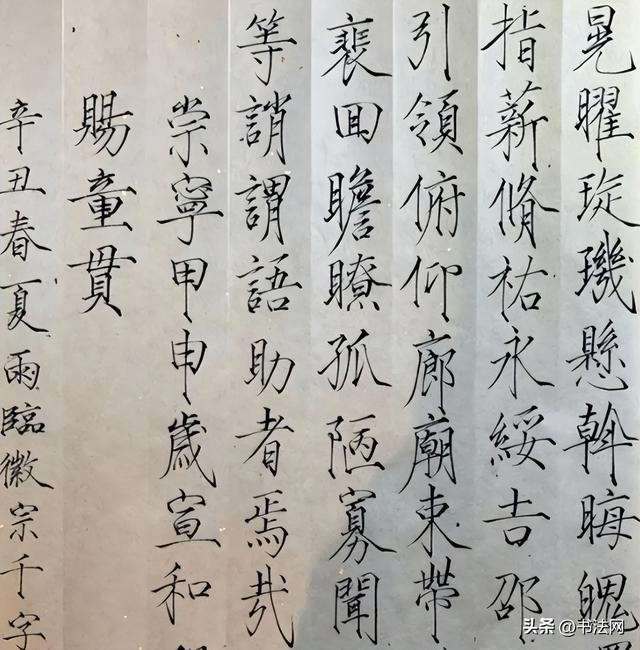 晃曜琁璣懸斡晦魄
指薪脩祐永綏吉邵
引領俯仰廊廟束帶
裵回瞻瞭孤陋寡聞
等誚謂語助者焉哉
崇寧甲申歲宣和
賜童貫
辛丑春夏雨臨徽宗千字
头条 @书法网